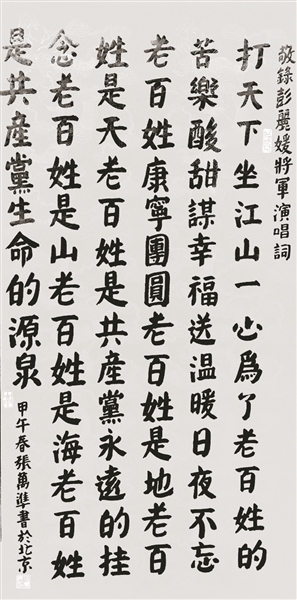 敬錄彭麗媛將軍演唱詞
打天下坐江山一心爲了老百姓的
苦樂酸甜謀幸福送温暖日夜不忘
老百姓康寧團圓老百姓是地老百
姓是天老百姓是共產黨永遠的挂
念老百姓是山老百姓是海老百姓
是共產黨生命的源泉
甲午春張萬準書於北京